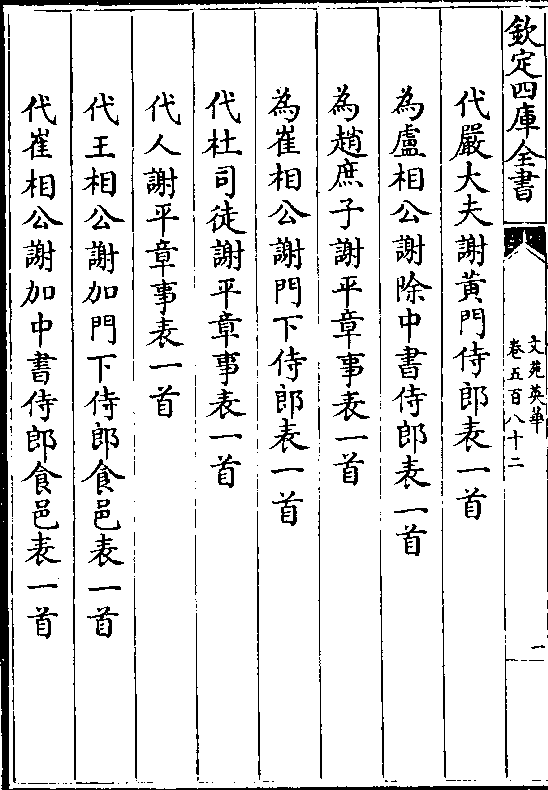 欽定四庫全書
文苑英華
卷五百八十二
一
代嚴大夫謝黃門侍郎表一首
為盧相公謝除中書侍郎表一首
為趙庶子謝平章事表一首
為崔相公謝門下侍郎表一首
代杜司徒謝平章事表一首
代人謝平章事表一首
代王相公謝加門下侍郎食邑表一首
代崔相公謝加中書侍郎食邑表一首